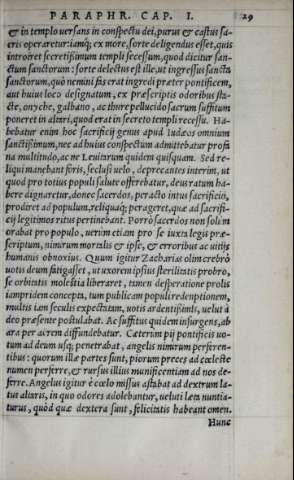 PARAPHR. CAP. I. 29
& in templo versans in conspectu dei, purus & castus sa-
cris operaretur: iamq; ex more, sorte deligendus esset, quis
introiret secretissimum templi secessum, quod dicitur san-
ctum sanctorum: sorte delectus est ille, ut ingressus sancta
sanctorum, quò nemini fas erat ingredi præter pontificem,
aut huius loco designatum, ex præscriptis odoribus sta-
cte, onyche, galbano, ac thure pellucido sacrum suffitum
poneret in altari, quod erat in secreto templi recessu. Ha-
bebatur enim hoc sacrificij genus apud Iudæos omnium
sanctissimum, nec ad huius conspectum admittebatur profa
na multitudo, ac ne Leuitarum quidem quisquam. Sed re-
liqui manebant foris, seclusi uelo, deprecantes interim, ut
quod pro totius populi salute offerebatur, deus ratum ha-
bere dignaretur, donec sacerdos, peracto intus sacrificio,
prodiret ad populum, reliquaq; perageret, quæ ad sacrifi-
cij legitimos ritus pertinebant. Porrò sacerdos non solum
orabat pro populo, uerùm etiam pro se iuxta legis præ-
scriptum, nimirum mortalis & ipse, & erroribus ac uitijs
humanis obnoxius. Quum igitur Zacharias olim crebrò
uotis deum fatigasset, ut uxorem ipsius sterilitatis probro,
se orbitatis molestia liberaret, tamen desperatione prolis
iampridem concepta, tum publicam populi redemptionem,
multis iam seculis expectatam, uotis ardentissimis, uelut à
deo præsente postulabat. Ac suffitus quidem insurgens, ab
ara per aërem diffundebatur. Cæterùm pij pontificis uo-
tum ad deum usq; penetrabat, angelis nimirum perferen-
tibus: quorum illæ partes sunt, piorum preces ad cœleste
numen perferre, & rursus illius munificentiam ad nos de-
ferre. Angelus igitur è cœlo missus astabat ad dextrum la-
tus altaris, in quo odores adolebantur, ueluti læta nuntia-
turus, quòd quæ dextera sunt, felicitatis habeant omen.
Hunc